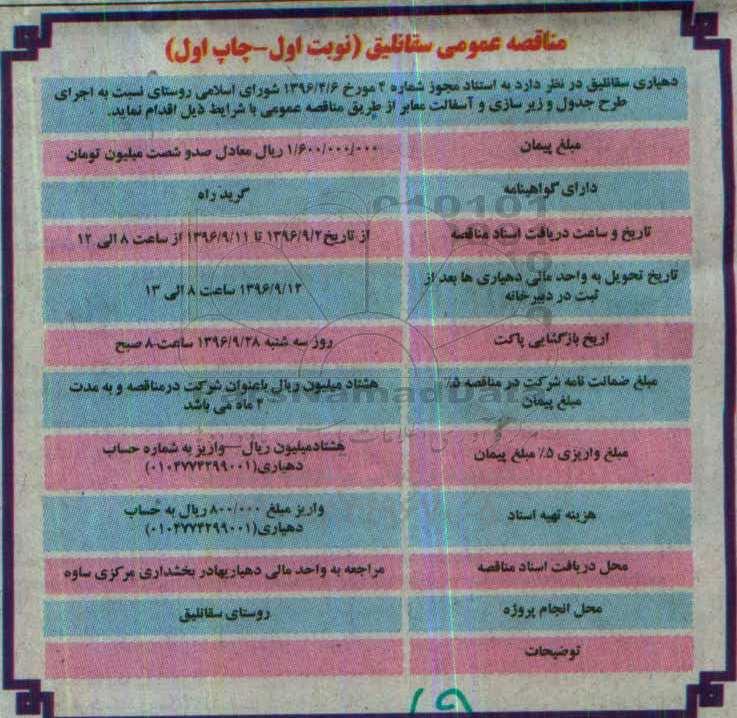 مناقصه عمومی سقانلیق (نوبت اول-چاپ اول)
دهیاری سقانلیق در نظر دارد به استناد مجوز شماره ۴ مورخ ۱۳۹۶/۴/۶ شورای اسلامی روستای نسبت به اجرای
طرح جدول و زیر سازی و آسفالت معابر از طریق مناقصه عمومی با شرایط ذیل اقدام نماید.
مبلغ پیمان
۱/۶۰۰/۰۰۰/۰۰۰ ریال معادل صدو شصت میلیون تومان
دارای گواهینامه
گرید راه
تاریخ و ساعت دریافت اسناد مناقصه
از تاریخ ۱۳۹۶/۹/۲ تا ۱۳۹۶/۹/۱۱ از ساعت ۸ الی ۱۲
تاریخ تحویل به واحد مالی دهیاری ها بعد از
ثبت در دبیرخانه
۱۳۹۶/۹/۱۲ ساعت ۸ الی ۱۳
اریخ بازگشایی پاکت
روز سه شنبه ۱۳۹۶/۹/۲۸ ساعت ۸ صبح
مبلغ ضمانت نامه شرکت در مناقصه ۵٪
مبلغ پیمان
هشتاد میلیون ریال باعنوان شرکت درمناقصه و به مدت
۳ ماه می باشد
مبلغ واریزی ۵٪ مبلغ پیمان
هشتادمیلیون ریال – واریز به شماره حساب
دهیاری(۰۱۰۴۷۷۴۲۹۹۰۰۱)
هزینه تهیه اسناد
واریز مبلغ ۸۰۰/۰۰۰ ریال به حساب
دهیاری(۰۱۰۴۷۷۴۲۹۹۰۰۱)
محل دریافت اسناد مناقصه
مراجعه به واحد مالی دهیاریهادر بخشداری مرکزی ساوه
محل انجام پروژه
روستای سقانلیق
توضیحات
۱۹